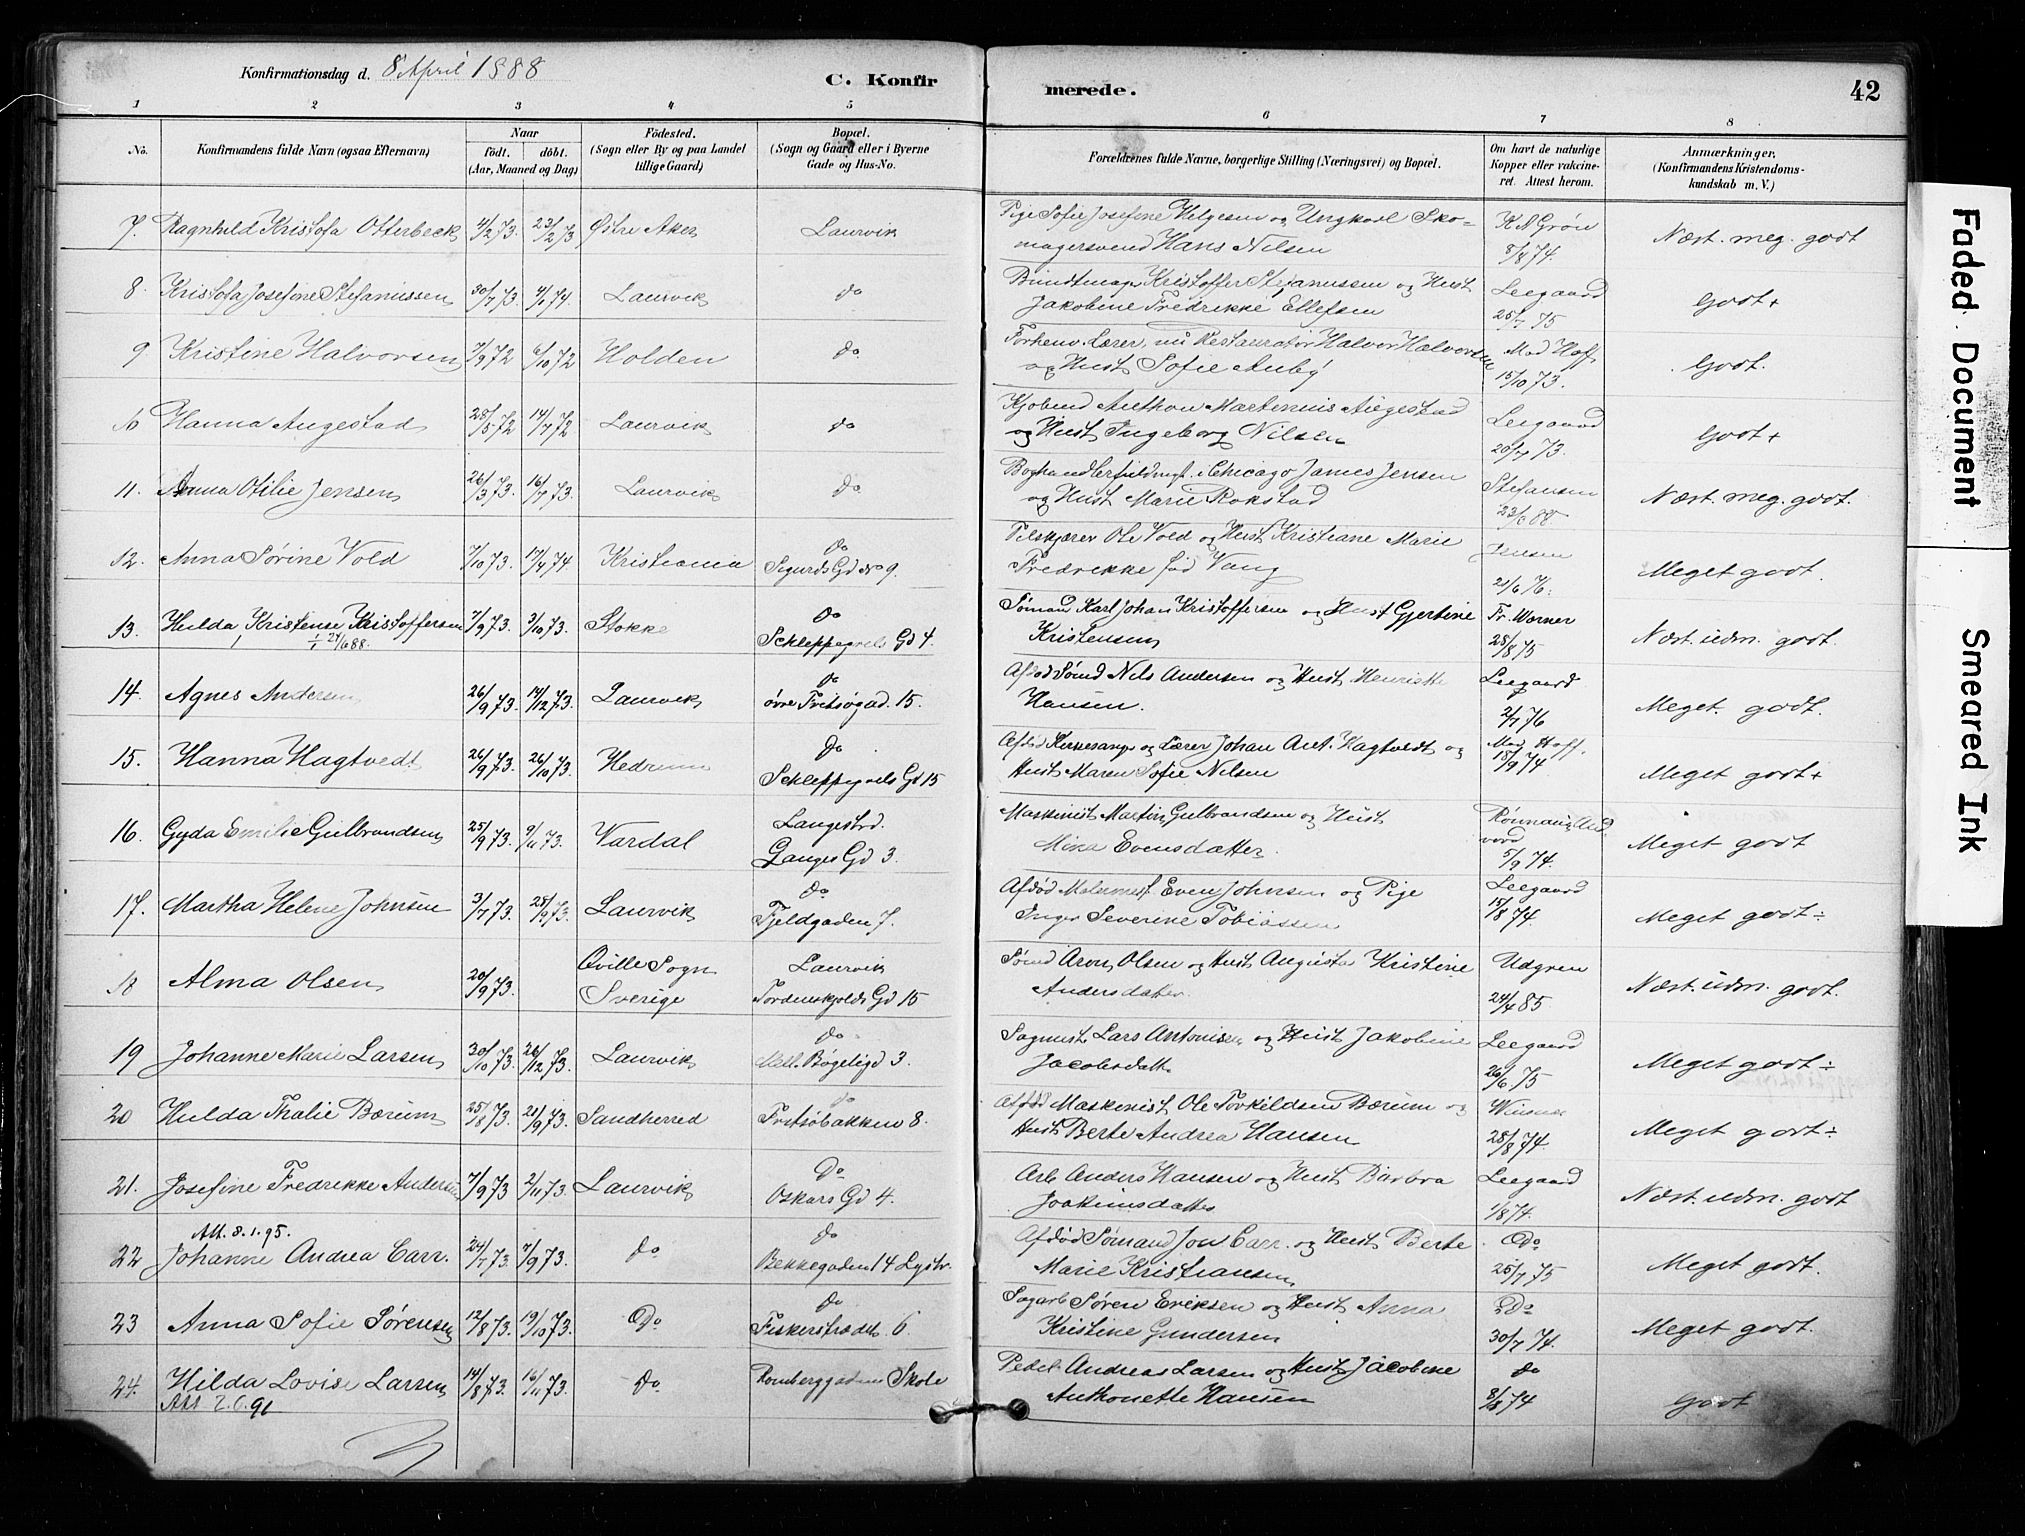 Konfirmationsdag d. 8 April 1888
C. Konfirmerede.
42
1 2 3 4 5 6 7 8
No. Konfirmandens fulde Navn (ogsaa Efternavn) Naar født. døbt. (Aar, Maaned og Dag) Födested. (Sogn eller By og paa Landet tillige Gaard) Bopæl. (Sogn og Gaard eller i Byerne Gade og Hus-No. Forældrenes fulde Navne, borgerlige Stilling (Næringsvei) og Bopæl. Om havt de naturlige Kopper eller vakcineret. Attest herom. Anmærkninger. (Konfirmandens Kristendomskundskab m. V.)
7. Ragnhild Kristofa Otterbeck 4/2 73. 23/2 73 Østre Aker Laurvik Pige Sofie Josefine Helgesen og Ungkarl Skomagersvend Hans Nilsen K N Grøn 8/8 74. Næst. meg. godt
8. Kristofa Josefine Stefanussen 30/7 73. 4/1 74. Laurvik do Kristoffer Stefanussen og Hust Jakobine Fredrikke Ellefsen Leegaard 25/7 75 Godt+
9 Kristine Halvorsen 7/9 72 6/10 72 Holden do Forhenv. Lærer, nu Restauratør Halvor Halvorsen og Hust Sofie Auby Mad Hoff 15/10 73. Godt.
10 Hanna Augestad 28/5 72 14/7 72 Laurvik do Kjøbmd Anthon Martinius Augestad og Hust Ingeborg Nilsen Leegaard 20/7 73. Godt+
11. Anna Otilie Jensen 26/3 73. 16/7 73. Laurvik do Boghandlerfuldmgt. i Chicago James Jensen og Hust Marie Rokstad Stefansen 23/3 88. Næst. meg. godt.
12. Anna Sørine Vold 7/10 73. 17/4 74. Kristiania do Sigurds Gd No 9. Ole Vold og Hust Kristiane Marie Fredrekke fød Vang Jensen 21/6 76. Meget godt.
13. Hulda Kristense Kristoffersen 7/9 73. 3/10 73. Stokke Do Schleppegrels Gd 4. Sømand Karl Johan Kristoffersen og Hust Gjertine Kristensen Fr. Worner 28/8 75 Næst. udm. godt.
24/6 88.
14. Agnes Andersen 26/9 73. 14/12 73. Laurvik do øvre Fritsøgad. 15. Afdød Sømd Nils Andersen og Hust Henriette Hansen. Leegaard 2/7 76 Meget. godt.
15. Hanna Hagtvedt 26/9 73. 26/10 73. Hedrum Do Schleppegrels Gd 15 Afdød Kirkesanger og Lærer Johan Ant. Hagtvedt og Hust Maren Sofie Nilsen Mad Hoff. 15/9 74 Meget godt+
16. Gyda Emilie Gulbrandsen 25/9 73. 9/11 73. Vardal Langestrd. Langes Gd 3. Maskinist Martin Gulbrandsen og Hust Mina Evensdatter. 5/9 74. Meget godt
17. Martha Helene Johnsen 3/7 73. 28/9 73. Laurvik do Fjeldgaden 7. Afdød Malermest. Even Johnsen og Pige Inger Severine Tobiassen Leegaard 15/8 74. Meget godt÷
18 Alma Olsen 20/9 73. Qville Sogn Sverige Laurvik Tordenskjolds Gd 15 Sømd Aron Olsen og Hust Augusta Kristine Andersdatter. Udgren 24/4 85 Næst. udm. godt.
19 Johanne Marie Larsen 30/10 73. 26/12 73. Laurvik do Mell. Bøgeligd 3. Sagmest. Lars Antonisen og Hust Jakobine Jacobsdatt. Leegaard 26/6 75 Meget godt÷
20 Hulda Thalie Bærum 25/8 73. 21/9 73. Sandherred do Fritsøbakken 8. Afdød Maskinist Ole Torkildsen Bærum og Hust Berte Andrea Hansen Winsnes 28/8 74. Meget godt÷
21. Josefine Fredrikke Andersen 7/9 73 2/11 73. Laurvik Do Oskars Gd 4. Arb Anders Hansen og Hust Barbra Joakimsdatter Leegaard 1/8 74. Næst. udm. godt
Att. 8.1.95.
22 Johanne Andrea Carr. 24/7 73. 7/9 73. do do Bekkegaden 14 Lystr. Afdød Sømand Jon Carr. og Hust Berte Marie Kristiansen Do 25/7 75 Meget godt.
23 Anna Sofie Sørensen 12/8 73. 19/10 73. Do do Fiskerstrædet 6. Sagarb Søren Eriksen og Hust Anna Kristine Gundersen Do 30/7 74. Meget godt.
24. Hilda Lovise Larsen 14/8 73. 16/11 73. Do Romberggadens Skole Pedel Andreas Larsen og Hust Jacobine Anthonette Hansen do 8/8 74 Godt
Att 2.6.91
Faded Document
Smeared Ink